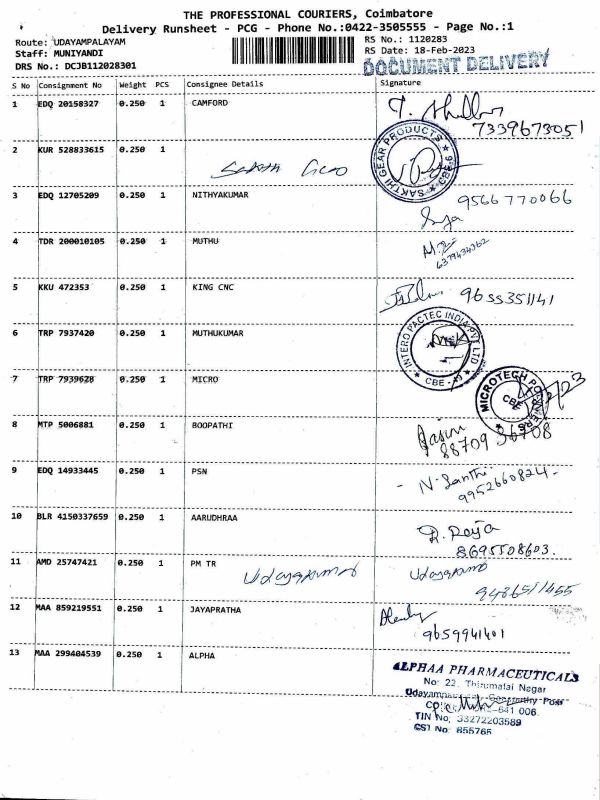 THE PROFESSIONAL COURIERS, Coimbatore
Delivery Runsheet - PCG - Phone No.:0422-3505555 - Page No.:1
Route: UDAYAMPALAYAM
Staff: MUNIYANDI
DRS No.: DCJB112028301
RS No.: 1120283
RS Date: 18-Feb-2023
DOCUMENT DELIVERY
S No Consignment No Weight PCS Consignee Details Signature
1 EDQ 20158327 0.250 1 CAMFORD
7339673051
2 KUR 528833615 0.250 1
SAKTHI GEAR PRODUCTS CBE-6
3 EDQ 12705209 0.250 1 NITHYAKUMAR 9566770066
4 TDR 200010105 0.250 1 MUTHU
6379434362
5 KKU 472353 0.250 1 KING CNC 9655351141
6 TRP 7937420 0.250 1 MUTHUKUMAR
INTERO PACTEC INDIA PVT LTD CBE
7 TRP 7939628 0.250 1 MICRO
MICROTECH CBE
8 MTP 5006881 0.250 1 BOOPATHI
88709 36708
9 EDQ 14933445 0.250 1 PSN N. Santhi
9952660824
10 BLR 4150337659 0.250 1 AARUDHRAA
R. Roja
8695508603.
11 AMD 25747421 0.250 1 PM TR Udayakumar Udayakumar
9486511455
12 MAA 859219551 0.250 1 JAYAPRATHA
9659941401
13 MAA 299404539 0.250 1 ALPHA
ALPHAA PHARMACEUTICALS
No: 22, Thirumalai Nagar
641 006.
TIN No: 33272203589
CST No: 855765